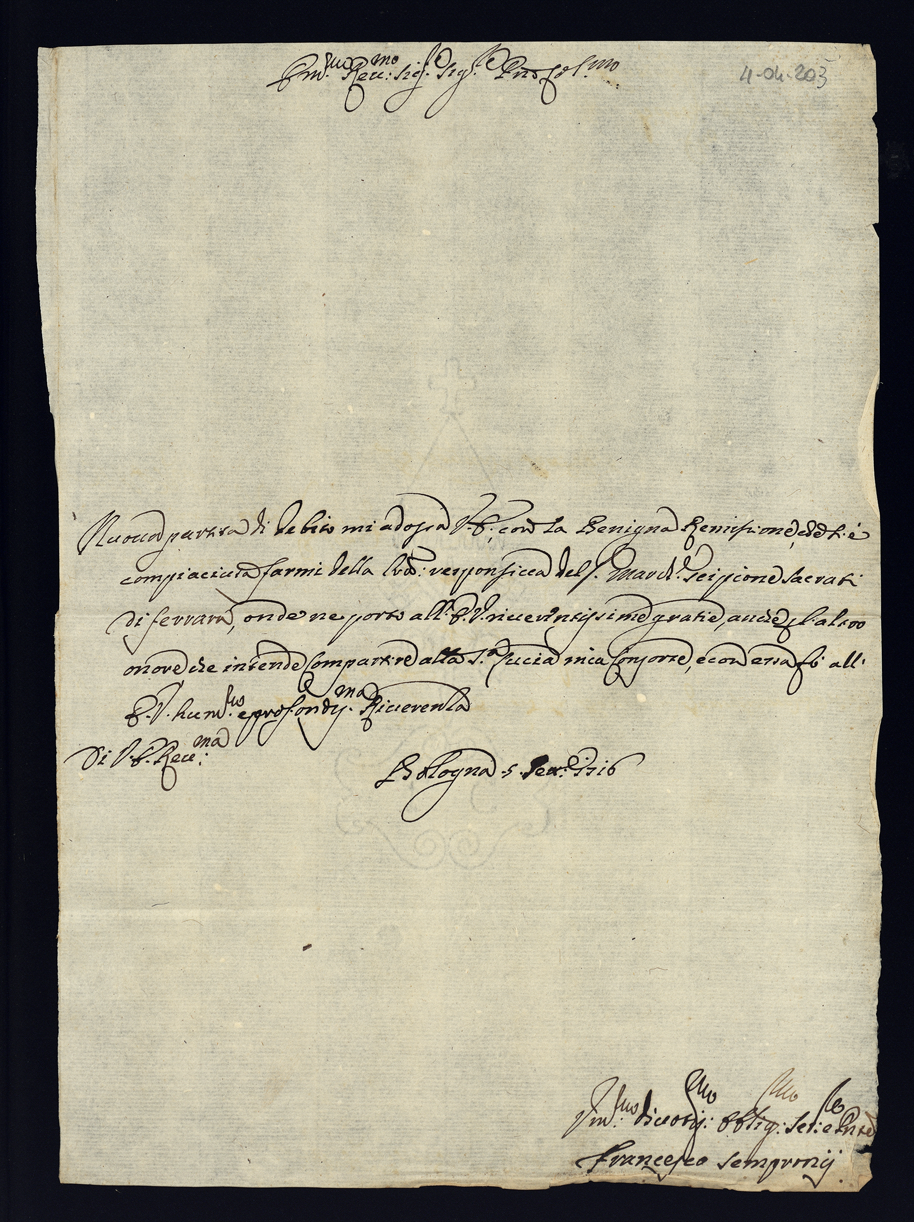 Em.mo Rev.mo Sig.re Sig.re Pñe Col.mo
4-04-203
Nuova partita di debito mi adossa V.E. con la Benigna Remissione, che si è
compiaciuta farmi della responsiva del S. March. Scipione Sacrati
di ferrara, onde ne porto all' E.V. riverentissime gratie, anche p l'altro
onore che intende Compartire alla S.a Lucia mia Consorte, e con essa fò all'
E.V. hum.ma e profondiss.ma Riverenza
Di V.E. Rev.ma
Bologna 5 1716
Um.mo divotiss.mo obblig.mo Ser.e
Francesco Sempronij